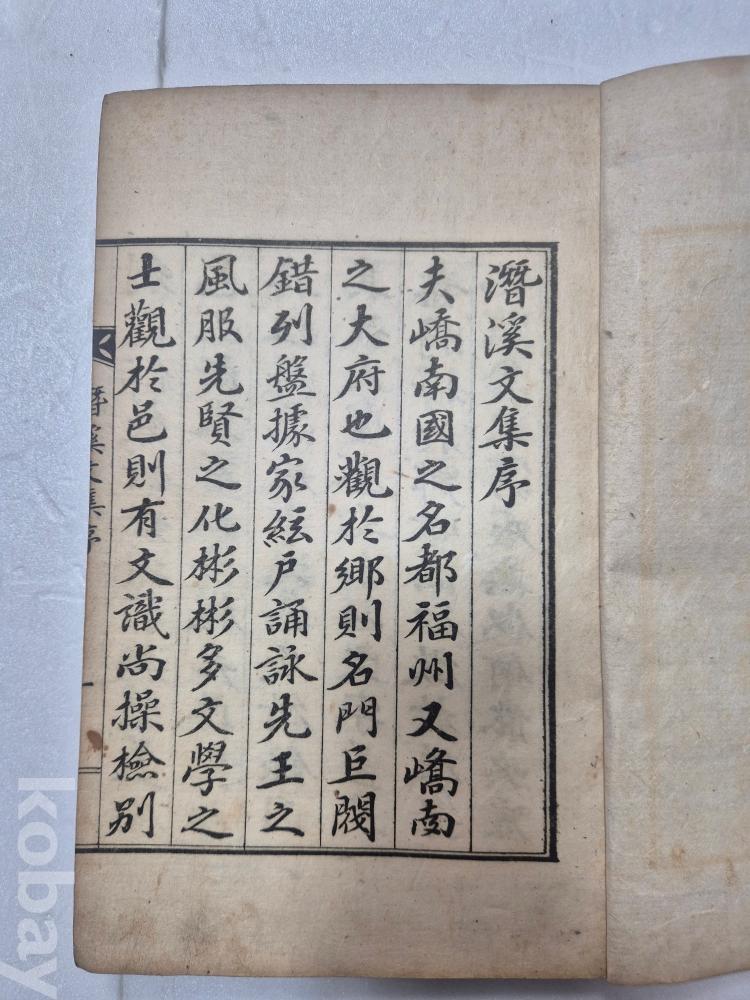 潛溪文集序
夫嶠南國之名都福州又嶠南
之大府也觀於鄉則名門巨閥
錯列盤據家絃戶誦詠先王之
風服先賢之化彬彬多文學之
士觀於邑則有文識尚操檢別
潛溪文集序
一
kobay